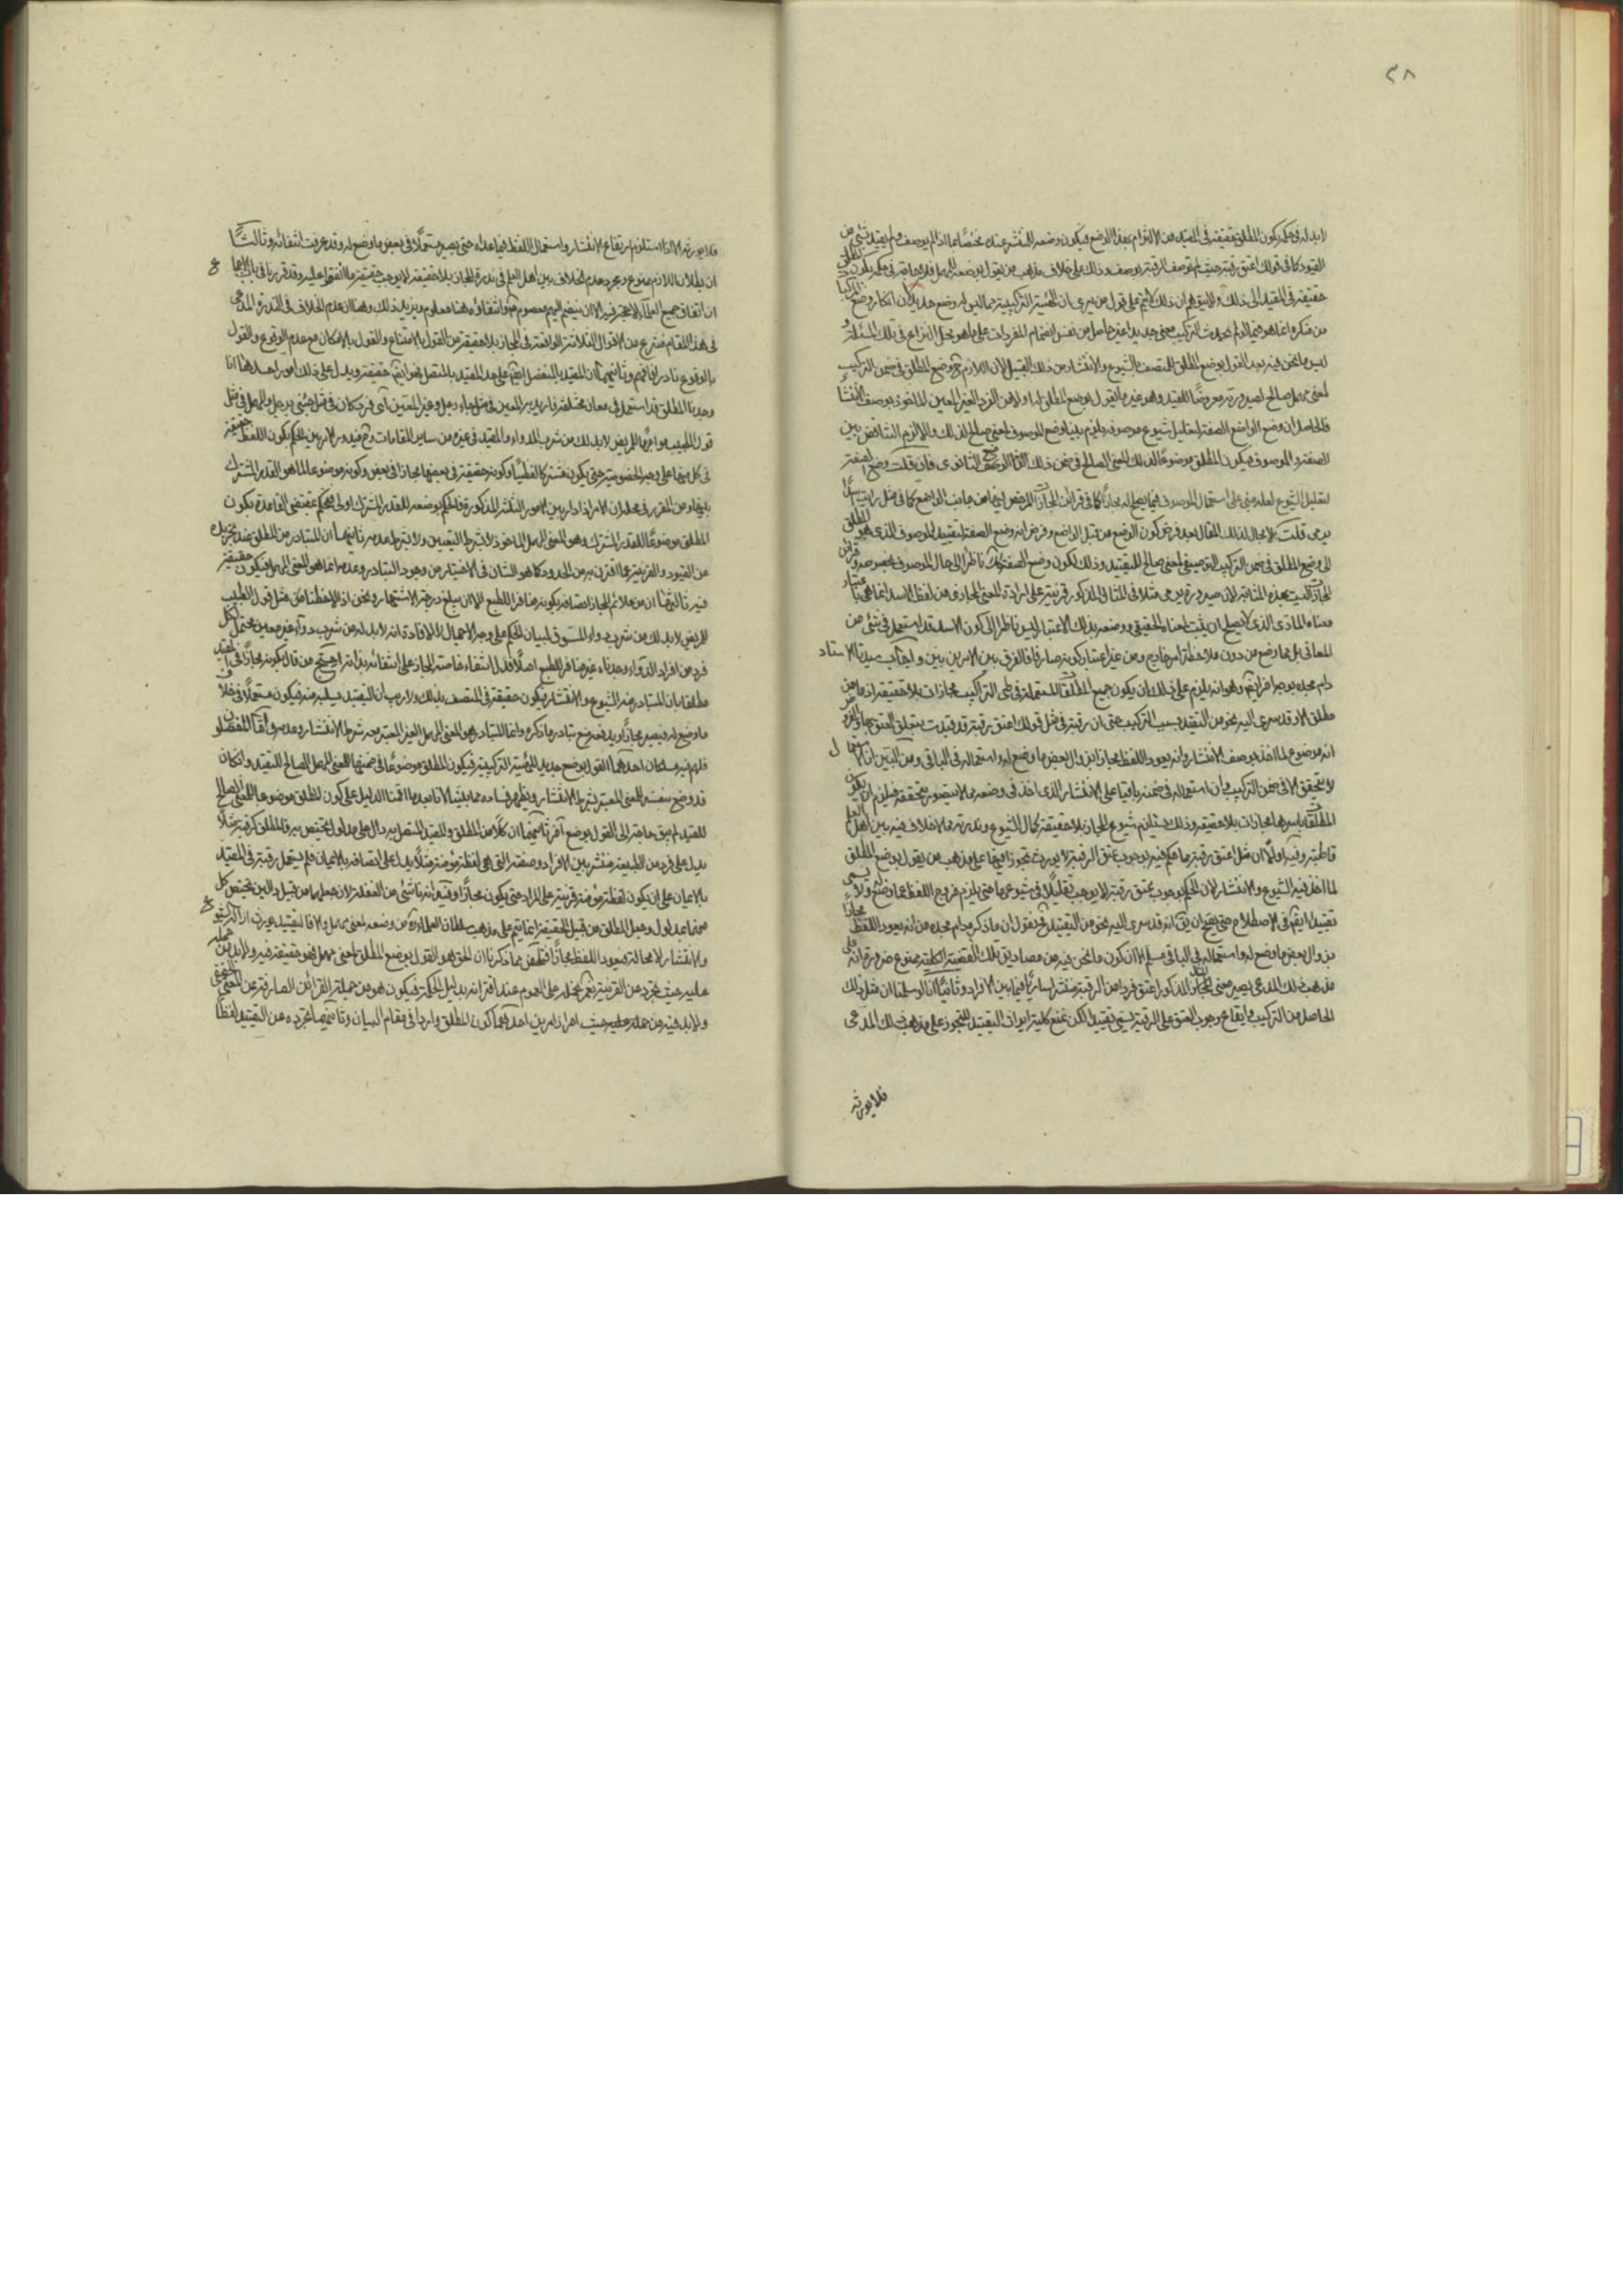 ٣٨
لابد له في حكمه بكون المطلق حقيقة في المقيد من الالتزام بهذا الوضع فيكون وضعه للمنتشر عنده مختصا بما اذا لم يوصف ولم يقيد بشيء من
القيود كما في قولك اعتق رقبة حيث لم توصف الرقبة بوصف وذلك على خلاف مذهب من يقول بوضعه للمهمل فلا حاجة له في حكمه بكون المطلق
حقيقة في المقيد الى ذلك ولا يتوهم ان ذلك لا يتم على قول من يرى ان الهيئة التركيبية مما ليس له وضع جديد لان انكار وضع المركبات
من منكره انما هو فيما لو لم يحدث التركيب معنى جديدا غير حاصل من نفس انضمام المفردات على ما هو محل النزاع في تلك المسئلة
ليس ما نحن فيه بعد القول بوضع المطلق للمتصف بالشيوع والانتشار من ذلك القبيل لان اللازم ح وضع المطلق في ضمن التركيب
لمعنى مهمل صالح لصيرورته معروضا للقيد وهو غير ما يقول بوضع المطلق له اولا من الفرد الغير المعين الماخوذ بوصف الانتشار
فالحاصل ان وضع الواضع الصفة لتقليل شيوع موصوفه يلزم بلينا وضع الموصوف لمعنى صالح لذلك والا لزم التناقض بين
الصفة والموصوف فيكون المطلق موضوعا لذلك المعنى الصالح في ضمن ذلك الوضع الثانوى فان قلت وضع الصفة
لتقليل الشيوع لعله مبنى على استعمال الموصوف فيما يصح له مجازا كما في قرائن المجازات المرخص فيها من جانب الواضع كما في مثل رايت اسدا
يرمى قلت لا مجال لذلك المقال بعد فرض كون الوضع من قبل الواضع وفرض انه وضع الصفة لتقييد الموصوف الذى هو المطلق
الى وضع المطلق في ضمن التركيب التوصيفى لمعنى صالح للتقييد وذلك لكون وضع الصفة كك ناظرا الى حال الموصوف بخصوصه وقرائن
المجازات ليست بهذه المثابة لان صيرورة يرمى مثلا في المثال المذكور قرينة على ارادة المعنى المجازى من لفظ الاسد انما هى باعتبار
معناه المادى الذى لا يصلح ان يثبت لمعناه الحقيقى ووضعه بذلك الاعتبار ليس ناظرا الى كون الاسد قد استعمل في شئ من
المعانى بل مما وضع من دون ملاحظة امر خارج ومن غير اعتبار كونه صارفا فالفرق بين الامرين بين واجاب سيدنا الاستاد
دام مجده بوجه اخر ايضا وهو انه يلزم على ذلك ان يكون جميع المطلقات المستعملة في طى التراكيب مجازات بلا حقيقة اذ ما من
مطلق الا وقد سرى اليه نحو من التقييد بحسب التركيب حتى ان رقبة في مثل قولك اعتق رقبة قد قيدت بتعلق العتق بها والمفروض
انه موضوع لما اخذ بوصف الانتشار وانه يعود اللفظ مجازا بزوال بعض ما وضع له واستعماله في الباقى ومن البين ان الاستعمال
لا يتحقق الا في ضمن التركيب وان استعماله في ضمنه باقيا على الانتشار الذى اخذ في وضعه مما لا يتصور تحققه فيلزم ان يكون
المطلقات باسرها مجازات بلا حقيقة وذلك يستلزم شيوع المجاز بلا حقيقة كمال الشيوع وندرته مما لا خلاف فيه بين اهل العلم
قاطبة وفيه اولا ان مثل اعتق رقبة مما حكم فيه بوجوب عتق الرقبة لا يورث تجوزا فيها على مذهب من يقول بوضع المطلق
لما اخذ فيه الشيوع والانتشار لان الحكم بوجوب عتق رقبة لا يوجب تقليلا في شيوعها حتى يلزم خروج اللفظ عما وضع له ولا يسمى
تقييدا ايضا في الاصطلاح حتى يصح ان يق انه قد سرى اليه نحو من التقييد وح نقول ان ما ذكره دام مجده من انه يعود اللفظ مجازا
بزوال بعض ما وضع له واستعماله في الباقى مسلم الا ان كون ما نحن فيه من مصاديق تلك القضية الكلية ممنوع ضرورة انه على
مذهب ذلك المدعى يصير معنى المثال المذكور اعتق فردا من الرقبة منتشرا ساريا فيما بين الافراد وثانيا انا لو سلمنا ان مثل ذلك
الحاصل من التركيب وايقاع وجوب العتق على الرقبة يسمى تقييدا لكن نمنع كلية ايراث التقييد للتجوز على مذهب ذلك المدعى
فلا يورثه
فلا يورثه الا اذا استلزم ارتفاع الانتشار واستعمال اللفظ فيما عداه حتى يصير مستعملا في بعض ما وضع له وقد عرفت انتفائه وثالثا
ان بطلان اللازم ممنوع ومجرد عدم الخلاف بين اهل العلم في ندرة المجاز بلا حقيقة لا يوجب حقيقة ما اتفقوا عليه وقد قررنا في باب الاجماع
ان اتفاق جميع العلماء لا عبرة فيه الا ان ينضم اليهم معصوم ع وانتفائه هنا معلوم ويزيد ذلك وهنا ان عدم الخلاف في الندرة المدعى
في هذا المقام منتزع من الاقوال الثلاثة الواقعة في المجاز بلا حقيقة من القول بالامتناع والقول بالامكان مع عدم الوقوع والقول
بالوقوع نادرا فافهم وثانيهما ان المقيد بالمنفصل ايضا على حد المقيد بالمتصل فهو ايضا حقيقة ويدل على ذلك امور احدها انا
وجدنا المطلق قد استعمل في معان مختلفة فاريد به المعين في مثل جاء رجل وغير المعين اى فرد كان في مثل جئنى برجل والمهمل في مثل
قول الطبيب مواجها للمريض لابد لك من شرب الدواء والمقيد في غيره من ساير المقامات وح فيدور الامر بين الحكم بكون اللفظ حقيقة
في كل منها على وجه الخصوصية حتى يكون مشتركا لفظيا وكونه حقيقة في بعضها مجازا في بعض وكونه موضوعا لما هو القدر المشترك
بينها ومن المقرر في محله ان الامر اذا دار بين الامور الثلثة المذكورة فالحكم بوضعه للقدر المشترك اولى فيحكم بمقتضى القاعدة بكون
المطلق موضوعا للقدر المشترك وهو المعنى المهمل الماخوذ لا بشرط التعيين ولا بشرط عدمه ثانيها ان المتبادر من المطلق عند تجريده
عن القيود والقرينة عما اقترن به من الحدود كما هو الشان في الاختبار من وجود التبادر وعدمه انما هو المعنى المهمل فيكون حقيقة
فيه ثالثها ان من علائم المجاز اتصافه بكونه منافرا للطبع الا ان يبلغ درجة الاشتهار ونحن اذا لاحظنا كل مثل قول الطبيب
للمريض لابد لك من شرب دواء المسوق لبيان الحكم على وجه الاجمال لا لافادة انه لابد له من شرب دواء غير معين محتمل لكل
فرد من افراد الدواء وجدناه غير منافر للطبع اصلا فدل انتفاء خاصة المجاز على انتفائه بذاته احتج من قال بكونه مجازا في المقيد
مطلقا بان المتبادر منه الشيوع والانتشار فيكون حقيقة في المتصف بذلك ولا ريب ان التقييد يسلبه منه فيكون مستعملا في خلاف
ما وضع له فيصير مجازا ويدفعه منع تبادر ما ذكره وانما المتبادر هو المعنى المهمل الغير المعتبر معه شرط الانتشار وعدمه
فلهم فيه مسلكان احدهما القول بوضع جديد للهيئة التركيبية فيكون المطلق موضوعا في ضمنها للمعنى المهمل الصالح للتقييد وان كان
قد وضع بنفسه للمعنى المعتبر بشرط الانتشار ويظهر فساده مما بيناه لانا بعد ما اقمنا الدليل على كون المطلق موضوعا للمعنى الصالح
للتقييد لم يبق حاجة الى القول بوضع اخر ثانيهما ان كلا من المطلق والمقيد المتصل به دال على مدلول يختص به فالمطلق كرقبة مثلا
يدل على فرد من الطبيعة منتشر بين الافراد وصفته التى هى لفظة مؤمنة مثلا يدل على اتصافه بالايمان فلم يستعمل رقبة في المقيد
بالايمان على ان يكون لفظة مؤمنة قرينة على المراد حتى يكون مجازا وفيه انه ناشئ من الغفلة لان جعلهما من قبيل دالين يختص كل
منهما بمدلول وجعل المطلق من قبيل الحقيقة انما يتم على مذهب سلطان العلماء ره من وضعه لمعنى مهمل والا فالتقييد يورث ازالة الشيوع
والانتشار لا محالة فيعود اللفظ مجازا فتلخص مما ذكرنا ان الحق هو القول بوضع المطلق لمعنى مهمل فهو حقيقة فيه ولابد من حمله
عليه حيث تجرد عن القرينة نعم نحمله على العموم عند اقترانه بدليل الحكمة فيكون هو من جملة القرائن الصارفة عن المعنى الحقيقى
ولابد فيه من حمله عليه حيث احراز امرين احدهما كون المطلق واردا في مقام البيان وثانيهما تجرده عن التقييد لفظا